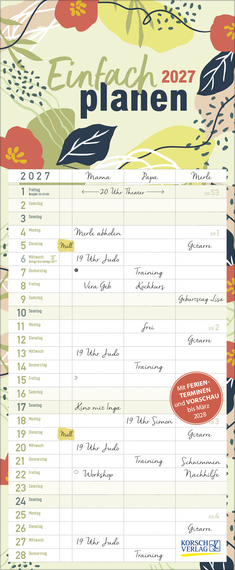 Einfach 2027
planen
2027 Mama Papa Merle
1 Freitag 20 Uhr Theater 53
2 Samstag
3 Sonntag
4 Montag Merle abholen 1
5 Dienstag Müll Gitarre
6 Mittwoch 19 Uhr Judo
7 Donnerstag Training
8 Freitag Vera Geb Kochkurs
9 Samstag Geburtstag Lisa
10 Sonntag
11 Montag frei 2
12 Dienstag Gitarre
13 Mittwoch 19 Uhr Judo
14 Donnerstag Training
15 Freitag
16 Samstag
17 Sonntag Kino mit Inge
18 Montag 19 Uhr Simon 3
19 Dienstag Müll Gitarre
20 Mittwoch 19 Uhr Judo
21 Donnerstag Training Schwimmen
22 Freitag Workshop Nachhilfe
23 Samstag
24 Sonntag
25 Montag 4
26 Dienstag Gitarre
27 Mittwoch 19 Uhr Judo
28 Donnerstag Training
Mit FERIEN-
TERMINEN
und VORSCHAU
bis März
2028
KORSCH
VERLAG